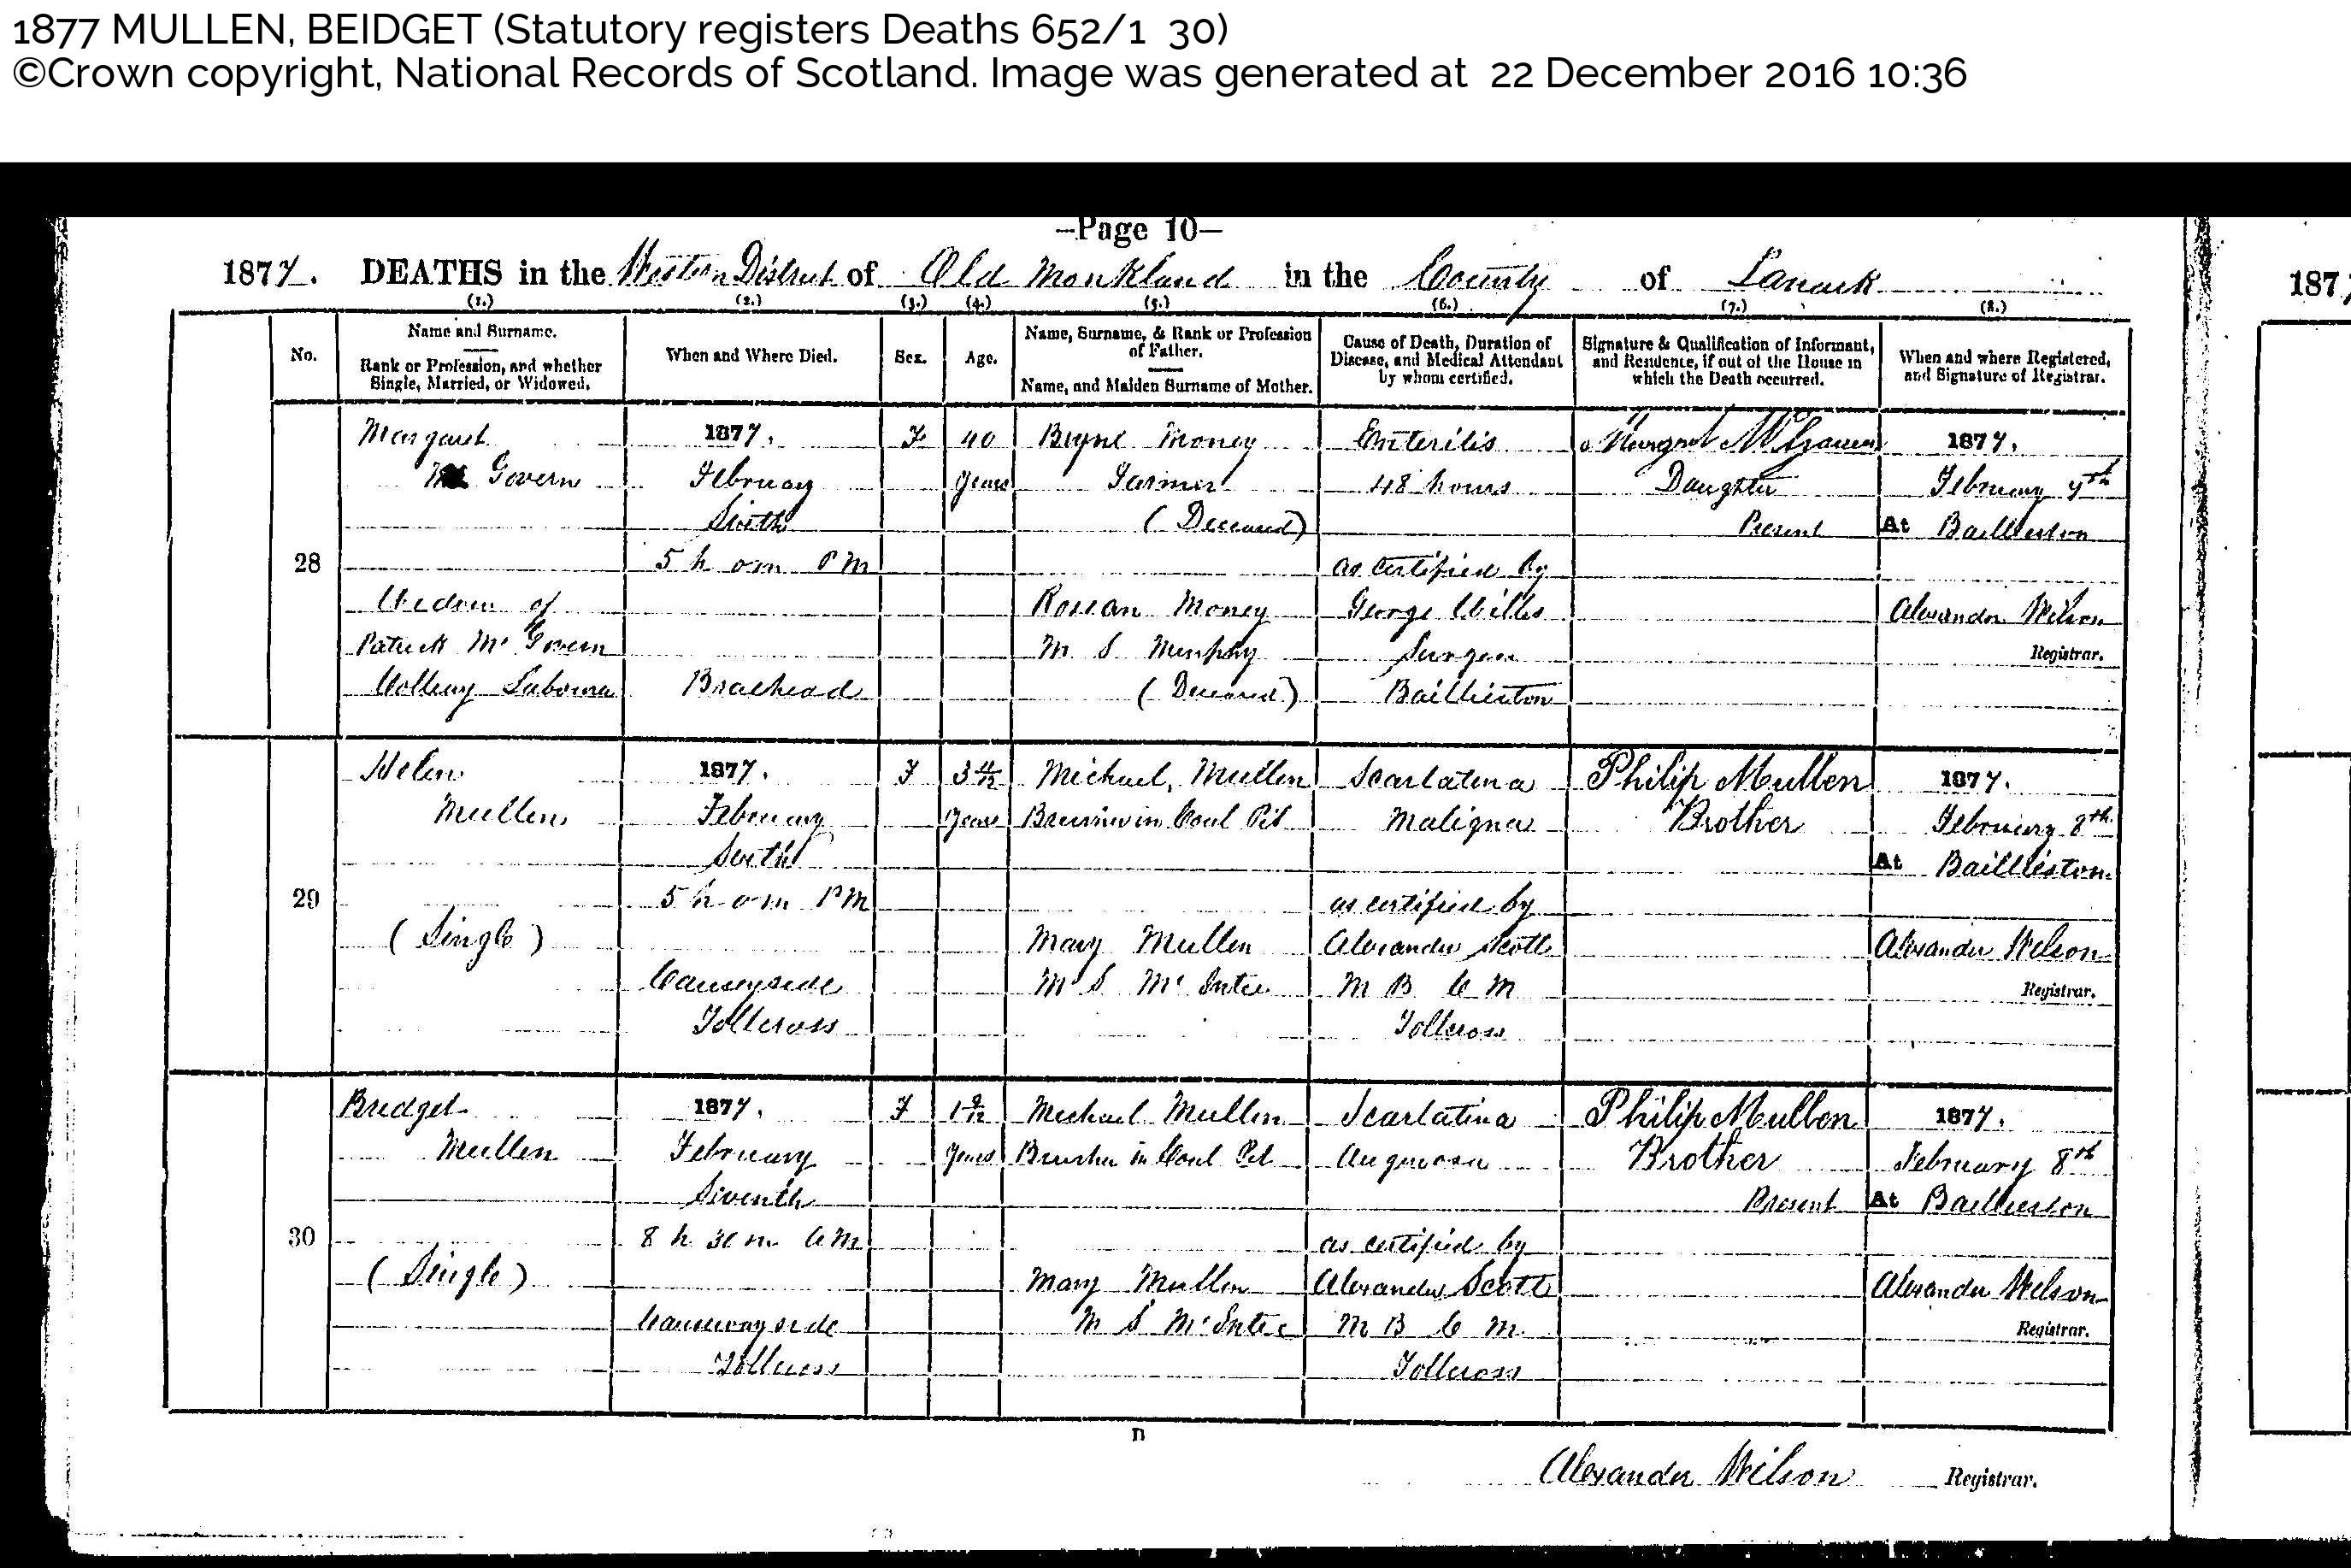 1877 MULLEN, BEIDGET (Statutory registers Deaths 652/1 30)
©Crown copyright, National Records of Scotland. Image was generated at 22 December 2016 10:36
—Page 10—
1877. DEATHS in the Western District of Old Monkland in the County of Lanark
187
(1.) (2.) (3.) (4.) (5.) (6.) (7.) (8.)
No.
Name and Surname.
Rank or Profession, and whether
Single, Married, or Widowed.
When and Where Died.
Sex.
Age.
Name, Surname, & Rank or Profession
of Father.
Name, and Maiden Surname of Mother.
Cause of Death, Duration of
Disease, and Medical Attendant
by whom certified.
Signature & Qualification of Informant,
and Residence, if out of the House in
which the Death occurred.
When and where Registered,
and Signature of Registrar.
28
Margaret
Govern
Widow of
Patrick Mc Govern
Colliery Labourer
1877.
February
Sixth
5 h 0 m PM
Braehead
F
40
Years
Money
Farmer
(Deceased)
Rosean Money
M S Murphy
(Deceased)
Enteritis
48 hours
as certified by
George Willis
Surgeon
Baillieston
Margret McGovern
Daughter
Present
1877.
February 7th
At Baillieston
Alexander Wilson
Registrar.
29
Helen
Mullen
(Single)
1877.
February
Sixth
5 h 0 m PM
Causeyside
Tollcross
F
3 4/12
Years
Michael Mullen
Brusher in Coal Pit
Mary Mullen
M S Mc Intee
Scarlatina
Maligna
as certified by
Alexander Scott
M B C M
Tollcross
Philip Mullen
Brother
1877.
February 8th
At Baillieston
Alexander Wilson
Registrar.
30
Bridget
Mullen
(Single)
1877.
February
Seventh
8 h 30 m AM
Causewayside
Tollcross
F
1 9/12
Years
Michael Mullen
Brusher in Coal Pit
Mary Mullen
M S Mc Intee
Scarlatina
Anginosa
as certified by
Alexander Scott
M B C M
Tollcross
Philip Mullen
Brother
Present
1877.
February 8th
At Baillieston
Alexander Wilson
Registrar.
D
Alexander Wilson Registrar.